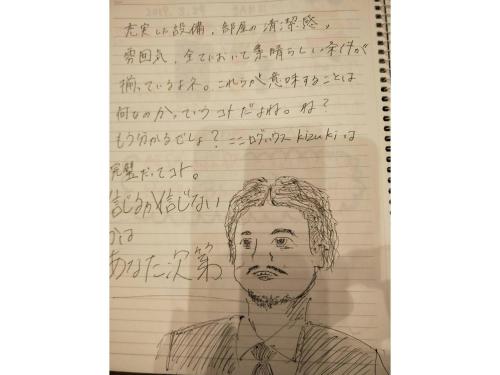 充実した設備、部屋の清潔感、
雰囲気、全てにおいて素晴らしい条件が
揃っているよネ。これらが意味することは
何なのかっていうコトだよね。ね?
もう分かるでしょ?ここログハウスkizukiは
完璧だってコト。
信じるか信じない
かは
あなた次第